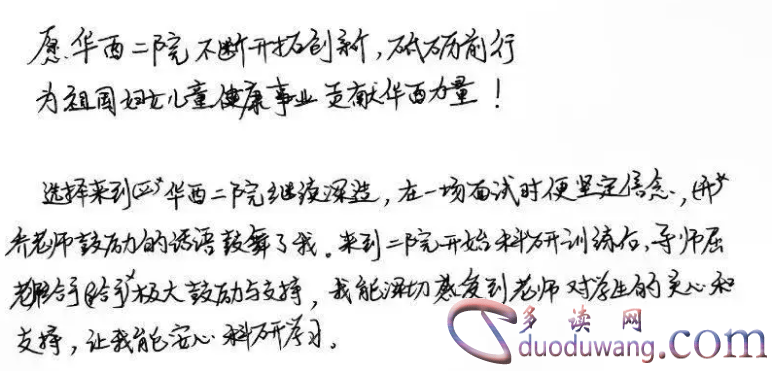 愿华西二院不断开拓创新，砥砺前行
为祖国妇女儿童健康事业贡献华西力量！
选择来到华西二院继续深造，在一场面试时便坚定信念，
老师鼓励的话语鼓舞了我。来到二院开始科研训练后，导师屈
老师给予极大鼓励与支持，我能深切感受到老师对学生的关心和
支持，让我能安心科研学习。
多读网
duoduwang.com